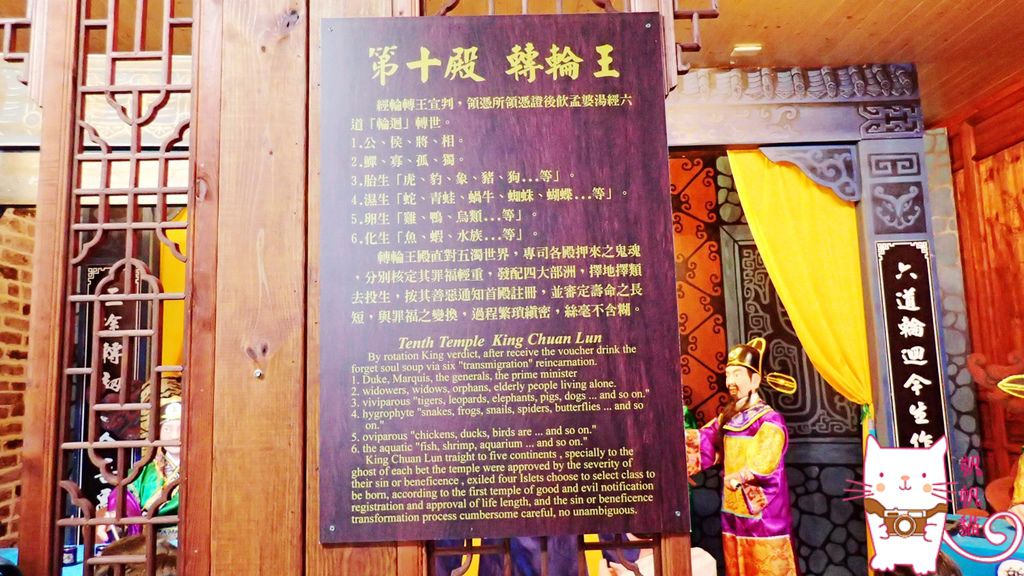 第十殿 轉輪王
經輪轉王宣判，領憑所領憑證後飲孟婆湯經六
道「輪迴」轉世。
1.公、侯、將、相。
2.鰥、寡、孤、獨。
3.胎生「虎、豹、象、豬、狗...等」。
4.濕生「蛇、青蛙、蝸牛、蜘蛛、蝴蝶...等」。
5.卵生「雞、鴨、鳥類...等」。
6.化生「魚、蝦、水族...等」。
轉輪王殿直對五濁世界，專司各殿押來之鬼魂
，分別核定其罪福輕重，發配四大部洲，擇地擇類
去投生，按其善惡通知首殿註冊，並審定壽命之長
短，與罪福之變換，過程繁瑣縝密，絲毫不含糊。
Tenth Temple King Chuan Lun
By rotation King verdict, after receive the voucher drink the
forget soul soup via six "transmigration" reincarnation.
1. Duke, Marquis, the generals, the prime minister
2. widowers, widows, orphans, elderly people living alone.
3. viviparous "tigers, leopards, elephants, pigs, dogs ... and so on."
4. hygrophyte "snakes, frogs, snails, spiders, butterflies ... and so
on."
5. oviparous "chickens, ducks, birds are ... and so on."
6. the aquatic "fish, shrimp, aquarium ... and so on."
King Chuan Lun traight to five continents , specially to the
ghost of each bet the temple were approved by the severity of
their sin or beneficence , exiled four Islets choose to select class to
be born, according to the first temple of good and evil notification
registration and approval of life length, and the sin or beneficence
transformation process cumbersome careful, no unambiguous.
六道輪迴今生作